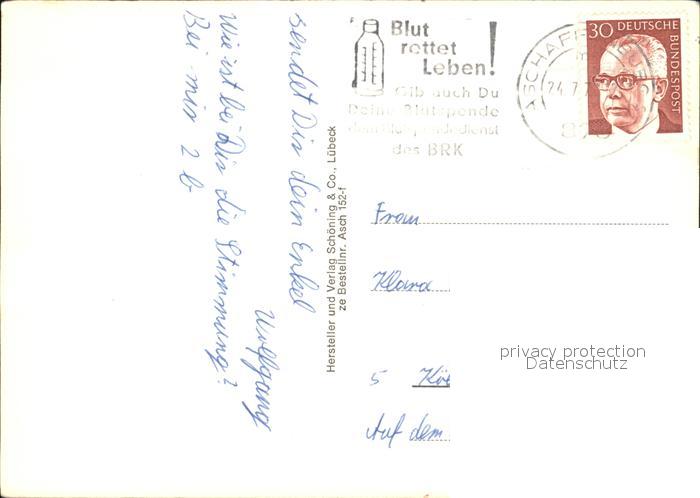 sendet Dir dein Enkel
Wolfgang
Wie ist bei Dir die Stimmung?
Bei mir 2 b
Hersteller und Verlag Schöning & Co., Lübeck
ze Bestellnr. Asch 152-f
Blut
rettet
Leben!
Gib auch Du
Deine Blutspende
dem Blutspendedienst
des BRK
ASCHAFF
24.7.7
30 DEUTSCHE
BUNDESPOST
Frau
Klara
5 Kö
Auf dem
privacy protection
Datenschutz